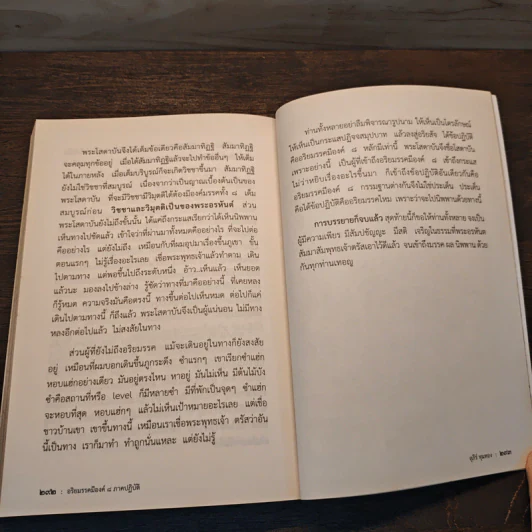 พระโสดาบันจึงได้เต็มข้อเดียวคือสัมมาทิฏฐิ สัมมาทิฏฐิ
จะคลุมทุกข้ออยู่ เมื่อได้สัมมาทิฏฐิแล้วจะไปทำข้ออื่นๆ ให้เต็ม
ได้ในภายหลัง เมื่อเต็มบริบูรณ์ก็จะเกิดวิชชาขึ้นมา สัมมาทิฏฐิ
ยังไม่ใช่วิชชาที่สมบูรณ์ เนื่องจากว่าเป็นญาณเบื้องต้นเป็นของ
พระโสดาบัน ที่จะมีวิชชามีวิมุตติได้ต้องมีองค์มรรคทั้ง ๘ เต็ม
สมบูรณ์ก่อน วิชชาและวิมุตติเป็นของพระอรหันต์ ส่วน
พระโสดาบันยังไม่ถึงขั้นนั้น ได้แค่ถึงกระแสเรียกว่าได้เห็นนิพพาน
เห็นทางไปชัดแล้ว เข้าใจว่าที่ผ่านมาทั้งหมดคืออย่างไร ที่จะไปต่อ
คืออย่างไร แต่ยังไม่ถึง เหมือนกับที่ผมอุปมาเรื่องขึ้นภูเขา ขั้น
ตอนแรกๆ ไม่รู้เรื่องอะไรเลย เชื่อพระพุทธเจ้าแล้วทำตาม เดิน
ไปตามทาง แต่พอขึ้นไปถึงระดับหนึ่ง อ้าว..เห็นแล้ว เห็นยอด
แล้วนะ มองลงไปข้างล่าง รู้ชัดว่าทางที่มาคืออย่างนี้ ที่เคยหลง
ก็รู้หมด ความจริงมันคือตรงนี้ ทางขึ้นต่อไปเห็นหมด ต่อไปก็แค่
เดินไปตามทางนี้ ก็ถึงแล้ว พระโสดาบันจึงเป็นผู้แน่นอน ไม่มีทาง
หลงอีกต่อไปแล้ว ไม่สงสัยในทาง
ส่วนผู้ที่ยังไม่ถึงอริยมรรค แม้จะเดินอยู่ในทางก็ยังสงสัย
อยู่ เหมือนที่ผมบอกเดินขึ้นภูกระดึง ซำแรกๆ เขาเรียกซำแฮก
หอบแฮ่กอย่างเดียว มันอยู่ตรงไหน หาอยู่ มันไม่เห็น มีต้นไม้บัง
ซำคือสถานที่หรือ level ก็มีหลายซำ มีที่พักเป็นจุดๆ ซำแฮก
จะหอบที่สุด หอบแฮ่กๆ แล้วไม่เห็นเป้าหมายอะไรเลย แต่เชื่อ
ชาวบ้านเขา เขาขึ้นทางนี้ เหมือนเราเชื่อพระพุทธเจ้า ตรัสว่าอัน
นี้เป็นทาง เราก็มาทำ ทำถูกนั่นแหละ แต่ยังไม่รู้
๒๓๒ | อริยมรรคมีองค์ ๘ ภาคปฏิบัติ
ท่านทั้งหลายอย่าลืมพิจารณารูปนาม ให้เห็นเป็นไตรลักษณ์
ให้เห็นเป็นกระแสปฏิจจสมุปบาท แล้วลงสู่อริยสัจ ได้ข้อปฏิบัติ
คืออริยมรรคมีองค์ ๘ หลักมีเท่านี้ พระโสดาบันจึงชื่อโสดาบัน
เพราะอย่างนี้ เป็นผู้ที่เข้าถึงอริยมรรคมีองค์ ๘ เข้าถึงกระแส
ไม่ว่าหยิบเรื่องอะไรขึ้นมา ก็เข้าถึงข้อปฏิบัติอันเดียวกันคือ
อริยมรรคมีองค์ ๘ กรรมฐานต่างกันจึงไม่ใช่ประเด็น ประเด็น
คือได้ข้อปฏิบัติคืออริยมรรคไหม เพราะว่าจะไปนิพพานด้วยทางนี้
การบรรยายก็จบแล้ว สุดท้ายนี้ก็ขอให้ท่านทั้งหลาย จงเป็น
ผู้มีความเพียร มีสัมปชัญญะ มีสติ เจริญในธรรมที่พระอรหันต
สัมมาสัมพุทธเจ้าตรัสเอาไว้ดีแล้ว จนเข้าถึงมรรค ผล นิพพาน ด้วย
กันทุกท่านเทอญ
สุภีร์ ทุมทอง | ๒๓๓